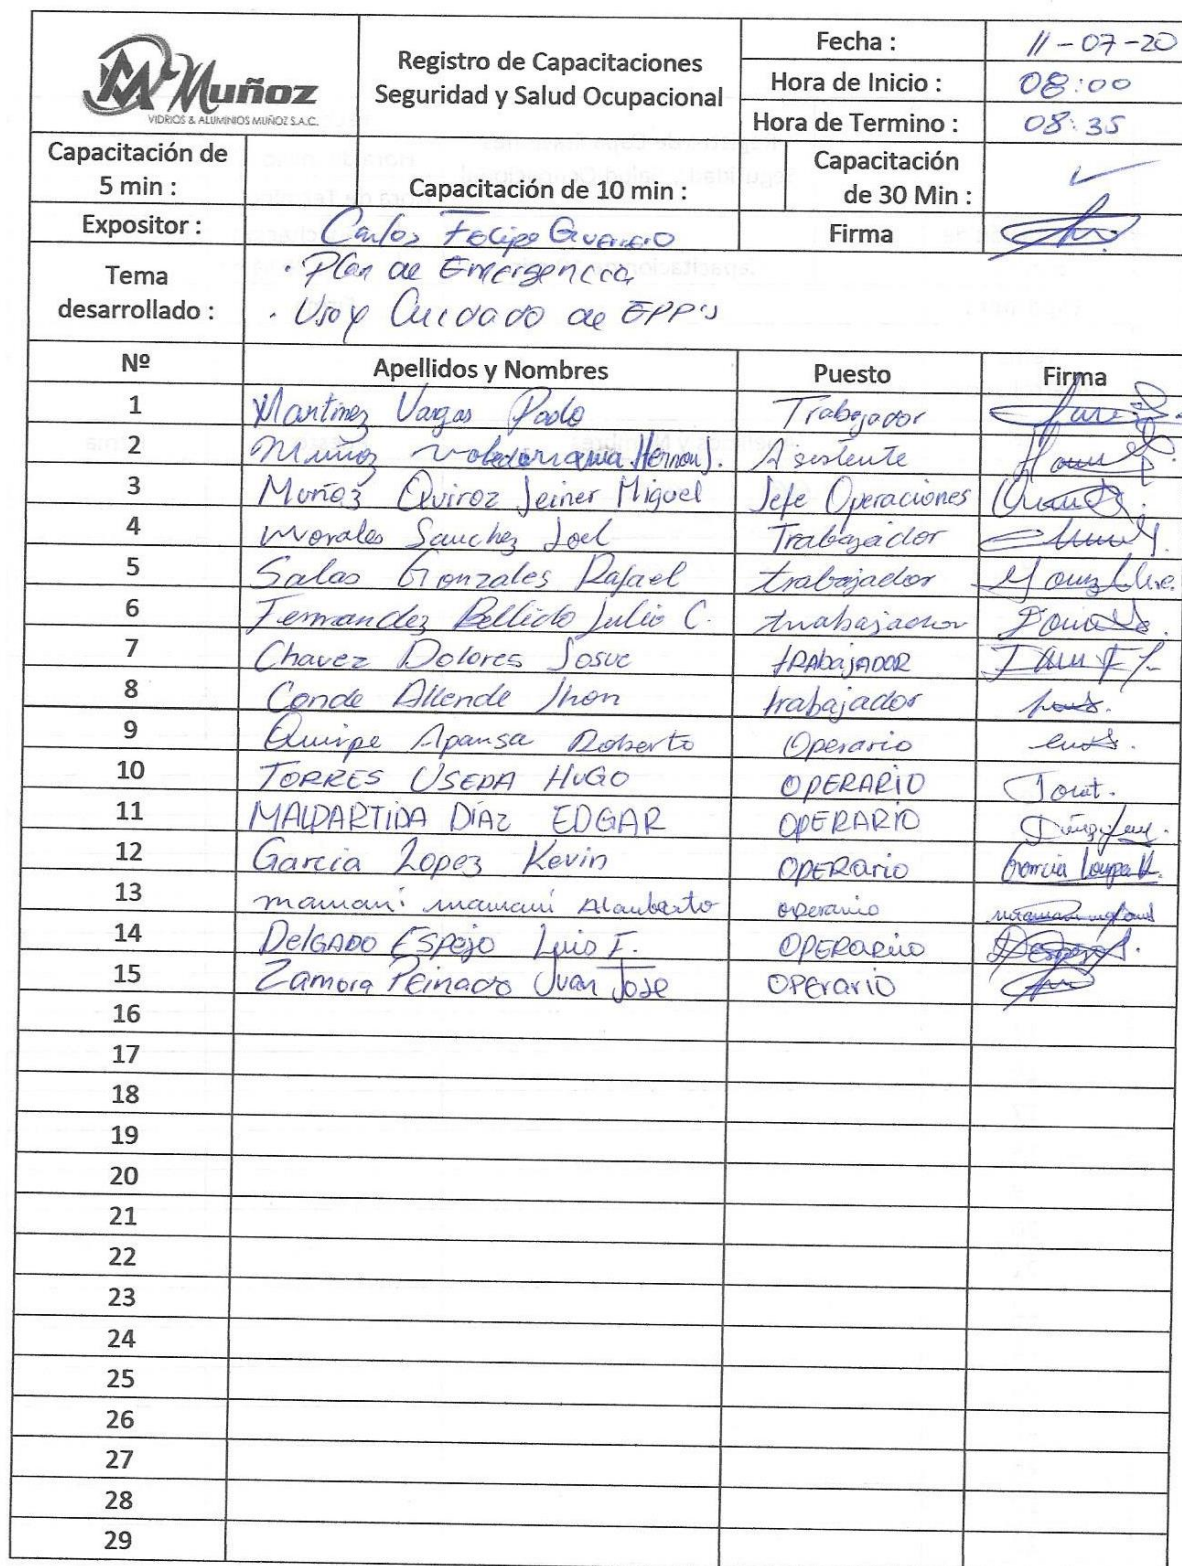 Muñoz
VIDRIOS & ALUMINIOS MUÑOZ S.A.C.
Registro de Capacitaciones
Seguridad y Salud Ocupacional
Fecha : 11-07-20
Hora de Inicio : 08:00
Hora de Termino : 08:35
Capacitación de
5 min :
Capacitación de 10 min :
Capacitación
de 30 Min : ✓
Expositor : Carlos Felipe Guerrero Firma
Tema
desarrollado :
· Plan de Emergencia
· Uso y Cuidado de EPP's
Nº Apellidos y Nombres Puesto Firma
1 Martinez Vargas Paolo Trabajador
2 Muñoz Hernan J. Asistente
3 Muñoz Quiroz Jeiner Miguel Jefe Operaciones
4 Morales Sanchez Joel Trabajador
5 Salas Gonzales Rafael trabajador
6 Fernandez Bellido Julio C. trabajador
7 Chavez Dolores Josue tRAbajADOR
8 Conde Allende Jhon trabajador
9 Quispe Apansa Roberto Operario
10 TORRES USEDA HUGO OPERARIO
11 MALPARTIDA DÍAZ EDGAR OPERARIO
12 Garcia Lopez Kevin OPERario
13 mamani mamani operario
14 DelGADO ESPEJO Luis F. OPERARIO
15 Zamora Peinado Juan Jose OPErario
16
17
18
19
20
21
22
23
24
25
26
27
28
29